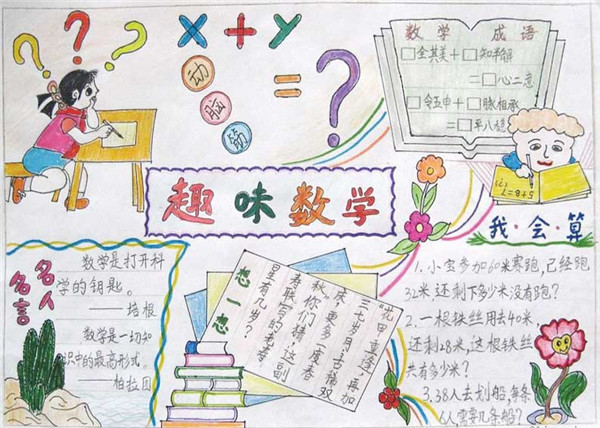 ? ? ?
X + Y
动
脑
筋
= ?
数学 成语
□全其美+□知半解
=□心二意
□令五申+□脉相承
=□平八稳
趣味数学
名人名言
数学是打开科
学的钥匙。
——培根
数学是一切知
识中的最高形式。
——柏拉图
想一想
“花甲重逢,再加
三七岁月;古稀双
庆,更多一度春
秋。”你们猜:这副
寿联写的老寿
星有几岁?
我·会·算
1.小宝参加60米赛跑,已经跑
32米,还剩下多少米没有跑?
2.一根铁丝用去40米,
还剩28米,这根铁丝
共有多少米?
3.38人去划船,每条
6人,需要几条船?